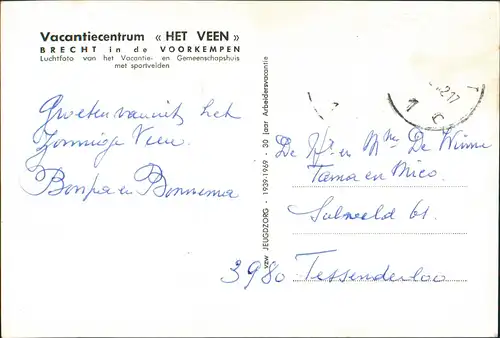 Vacantiecentrum « HET VEEN »
BRECHT in de VOORKEMPEN
Luchtfoto van het Vacantie- en Gemeenschapshuis
met sportvelden
Groeten vanuit het
Zonnige Veen.
Bonpa en Bonnema
vzw JEUGDZORG - 1939-1969 - 30 jaar Arbeidersvacantie
De Hr en Mme De Winne
Tama en Mico.
61.
3980 Tessenderloo